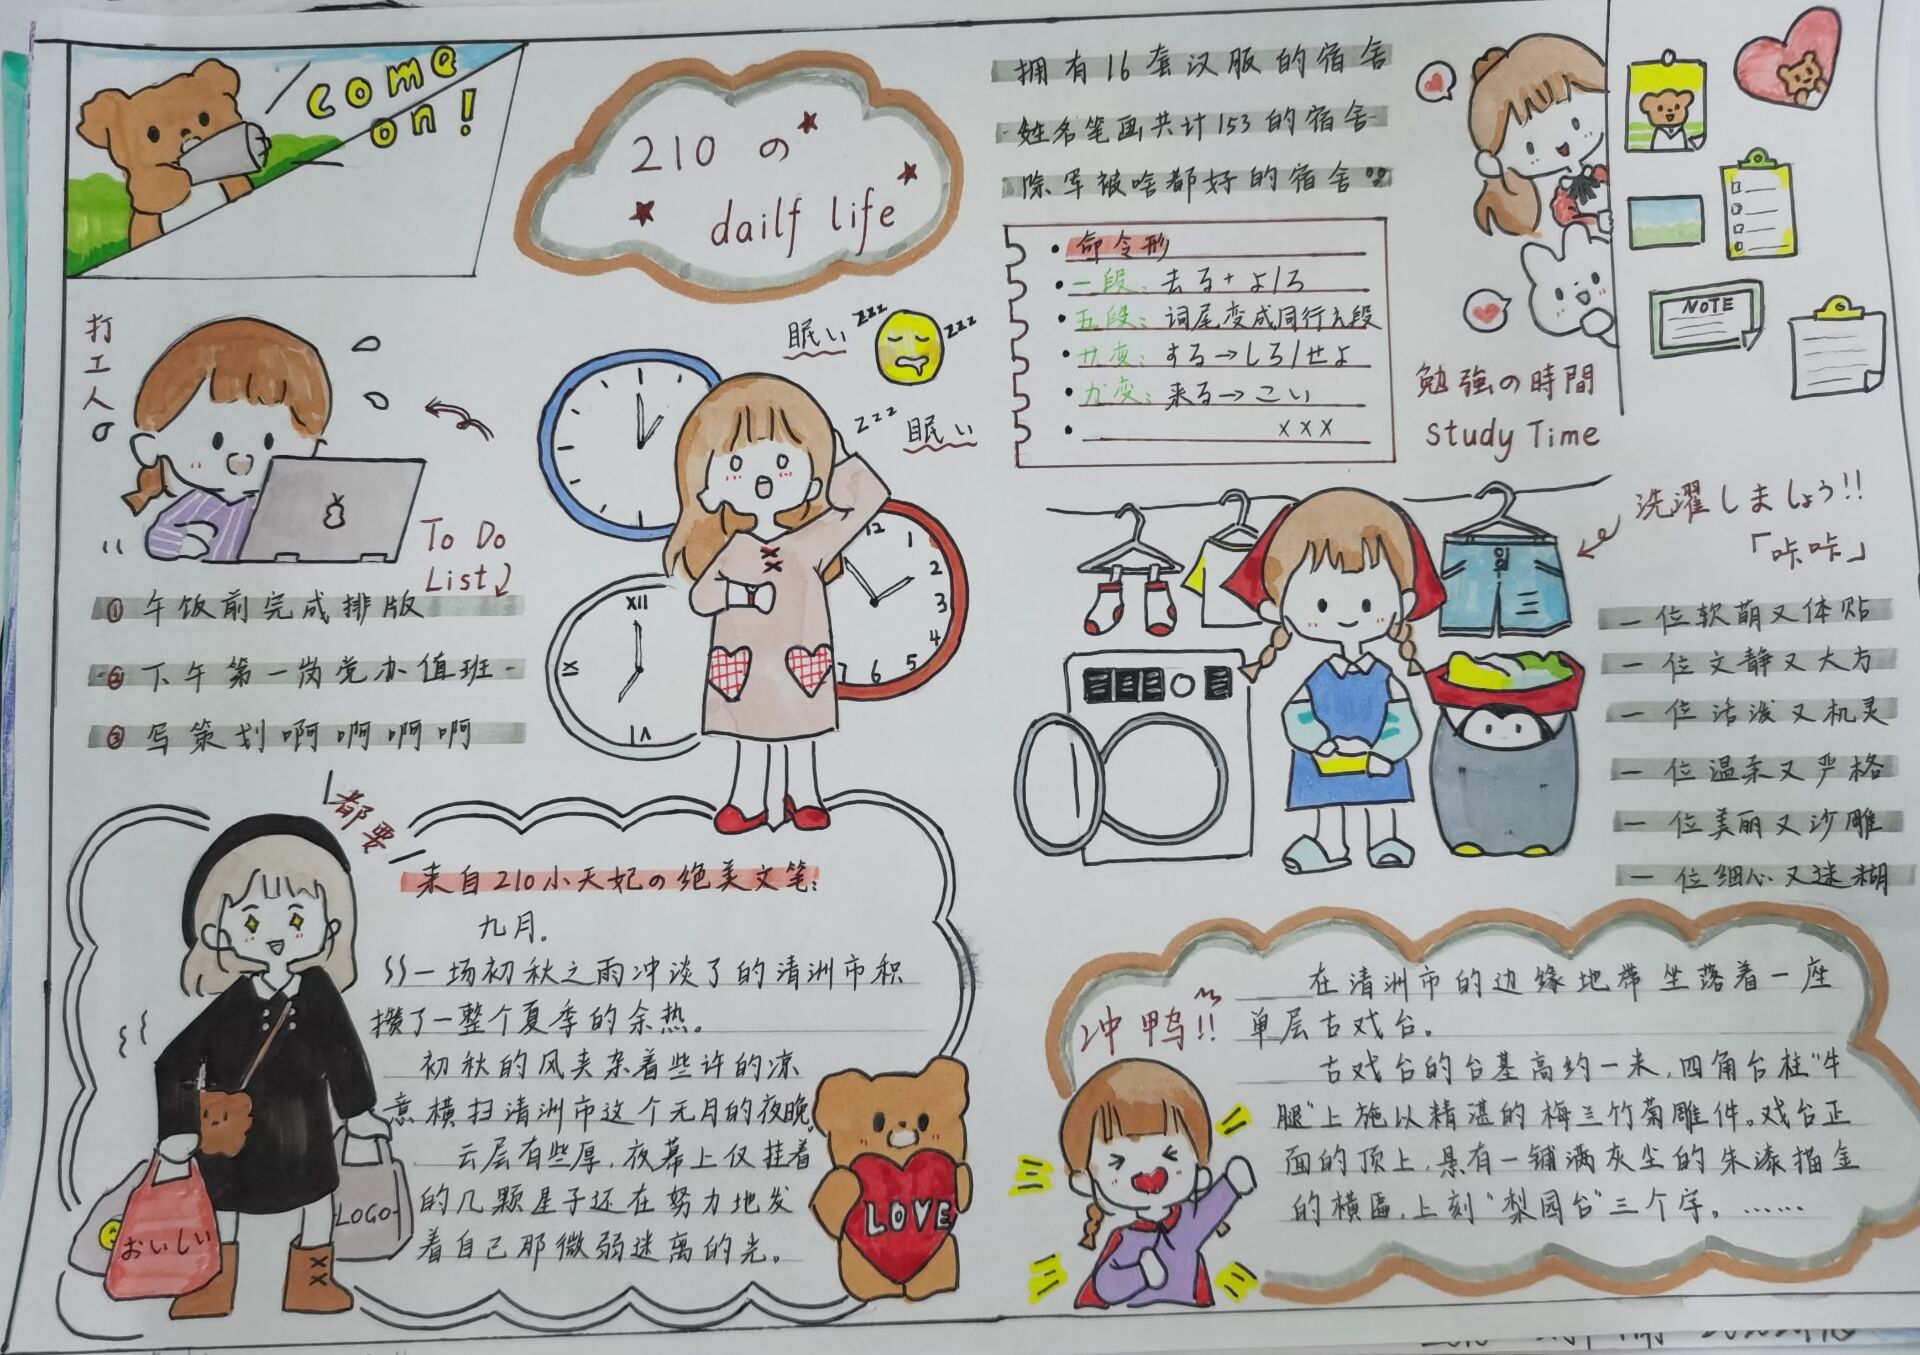 come
on!
210 の
dailf life
拥有16套汉服的宿舍
姓名笔画共计153的宿舍
除军被啥都好的宿舍
命令形
一段：去る+よ/ろ
五段：词尾变成同行え段
サ变：する→しろ/せよ
カ变：来る→こい
×××
NOTE
勉強の時間
study Time
打工人
眠い
zzz
zzz
zzz
眠い
To Do
List
①午饭前完成排版
②下午第一岗党办值班
③写策划啊啊啊啊
XII
VI
12
1
2
3
4
5
6
7
洗濯しましょう!!
「咔咔」
一位软萌又体贴
一位文静又大方
一位活泼又机灵
一位温柔又严格
一位美丽又沙雕
一位细心又迷糊
都要
来自210小天妃の绝美文笔：
九月.
一场初秋之雨冲淡了的清洲市积
攒了一整个夏季的余热。
初秋的风夹杂着些许的凉
意横扫清洲市这个九月的夜晚。
云层有些厚，夜幕上仅挂着
的几颗星子还在努力地发
着自己那微弱迷离的光。
おいしい
LOGO
LOVE
冲鸭!!
在清洲市的边缘地带坐落着一座
单层古戏台。
古戏台的台基高约一米，四角台柱"牛
腿"上施以精湛的梅兰竹菊雕件。戏台正
面的顶上，悬有一铺满灰尘的朱漆描金
的横匾，上刻"梨园台"三个字。……